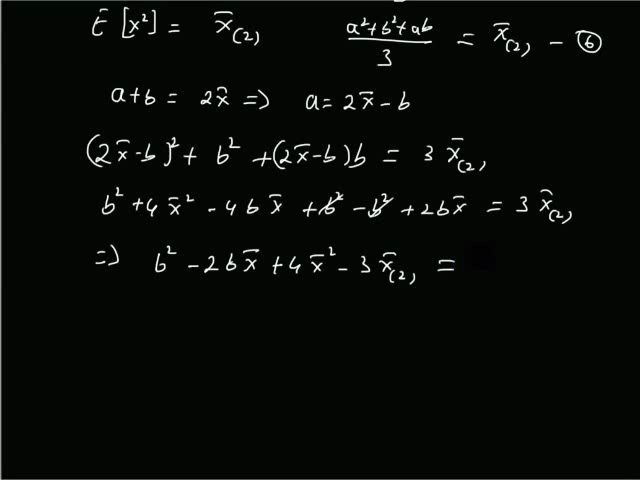 E [x²] = x̄₍₂₎   (a²+b²+ab)/3 = x̄₍₂₎ – ⑥
a+b = 2x̄ => a = 2x̄ – b
(2x̄-b)² + b² + (2x̄-b)b = 3 x̄₍₂₎
b² + 4x̄² - 4bx̄ + b² - b² + 2bx̄ = 3 x̄₍₂₎
=> b² - 2bx̄ + 4x̄² - 3x̄₍₂₎ =